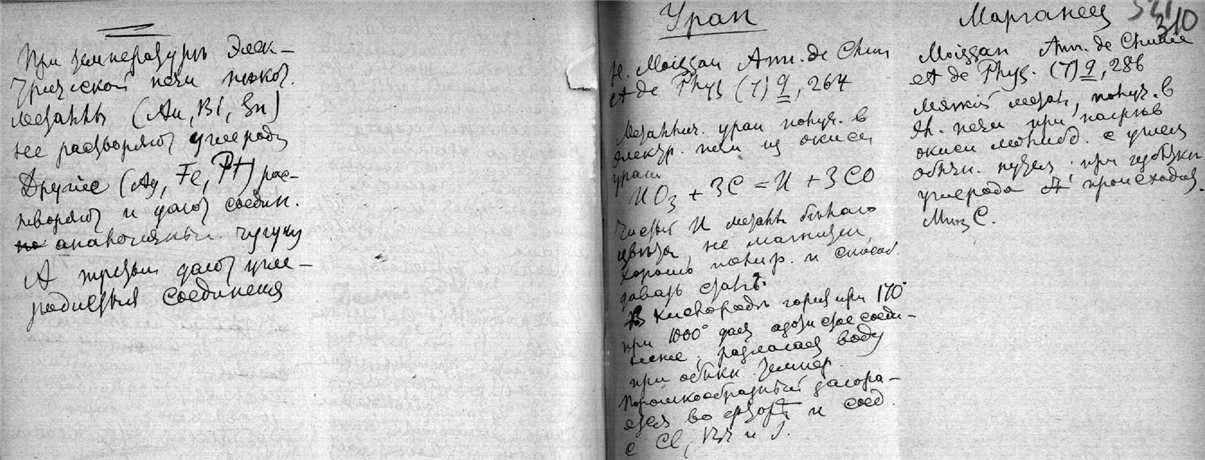 При температуре элек-
трической печи некот.
металлы (Au, Bi, Sn)
не растворяют углерода
Другие (Ag, Fe, Pt) рас-
творяют и дают соедин.
аналогичный чугуну
А третьи дают угле-
родистыя соединения
Уран
H. Moissan Ann. de Chim
et de Phys (7) 9, 264
Металлич. уран получ. в
электр. печи из окиси
урана
UO3 + 3C = U + 3CO
Чистый U металл белаго
цвета, не магнитен,
хорошо полир. и способ.
давать сталь.
В кислороде горит при 170°
при 1000° дает азотистое соеди-
нение, разлагает воду
при обыкн. темпер.
Порошкообразный загора-
ется во фторе и соед.
с Cl, Br и J.
Марганец
310
Moissan Ann. de Chimie
et de Phys. (7) 9, 286
получ. в
эл. печи при нагрев
окиси с углем
обыкн. при избытке
углерода происходит
Mn3C.